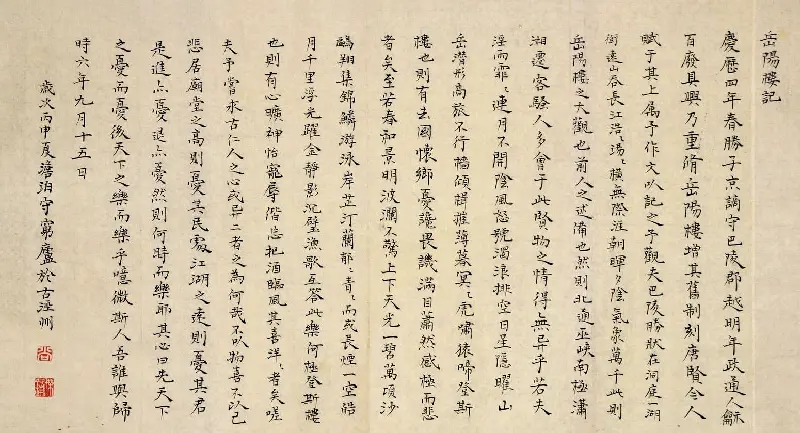 岳陽樓記
慶歷四年春滕子京謫守巴陵郡越明年政通人龢
百廢具興乃重脩岳陽樓增其舊制刻唐賢今人
賦于其上屬予作文以記之予觀夫巴陵勝狀在洞庭一湖
銜遠山吞長江浩〻湯〻橫無際涯朝暉夕陰氣象萬千此則
岳陽樓之大觀也前人之述備也然則北通巫峽南極瀟
湘遷客騷人多會于此覽物之情得無異乎若夫
淫雨霏〻連月不開陰風怒號濁浪排空日星隱曜山
岳潛形商旅不行檣傾楫摧薄暮冥〻虎嘯猿啼登斯
樓也則有去國懷鄉憂讒畏譏滿目蕭然感極而悲
者矣至若春和景明波瀾不驚上下天光一碧萬頃沙
鷗翔集錦鱗游泳岸芷汀蘭郁〻青〻而或長煙一空皓
月千里浮光躍金靜影沉璧漁歌互答此樂何極登斯樓
也則有心曠神怡寵辱偕忘把酒臨風其喜洋〻者矣嗟
夫予嘗求古仁人之心或異二者之為何哉不以物喜不以己
悲居廟堂之高則憂其民處江湖之遠則憂其君
是進亦憂退亦憂然則何時而樂耶其必曰先天下
之憂而憂後天下之樂而樂乎噫微斯人吾誰與歸
時六年九月十五日
歲次丙申夏澹泊守窮廬於古涇州